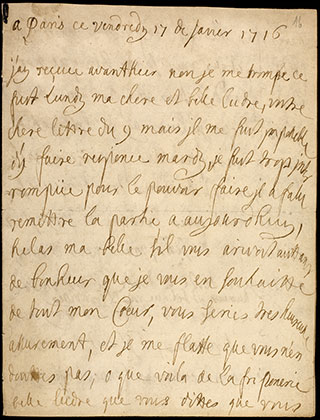 16
a Paris ce vendredy 17 de Janier 1716
j'ay reçeue avanthier non je me trompe ce
fust lundy ma chere et belle ludre, vostre
chere lettre du 9 mais il me fust impossible
d'y faire responce mardy, je fust trop
rompüe pour le pouvoir faire il a falu
remettre la partie a aujourdhuy,
helas ma belle sil vous arivoit autant
de bonheur que je vous en souhaitte
de tout mon Cœur, vous series tres heureuse
assurement, et je me flatte que vous n'en
doutes pas, o que voila de la friponerie
belle ludre que vous dittes que vous